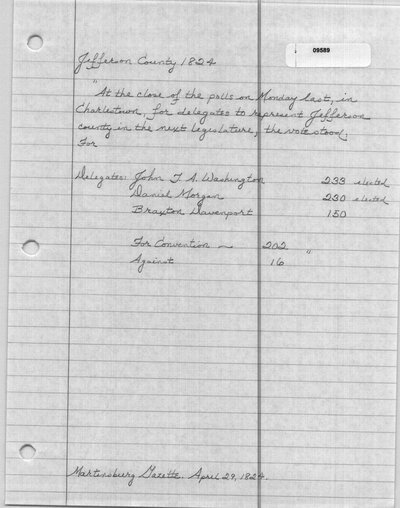 09589
Jefferson County 1824
"At the close of the polls on Monday last, in
Charlestown, for delegates to represent Jefferson
county in the next legislature, the vote stood:
For
Delegates: John T A. Washington 233 elected
Daniel Morgan 230 elected
Braxton Davenport 150
For Convention — 202 "
Against 16
Martinsburg Gazette. April 29, 1824.